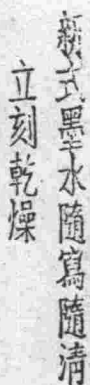 新式墨水隨寫隨清
立刻乾燥